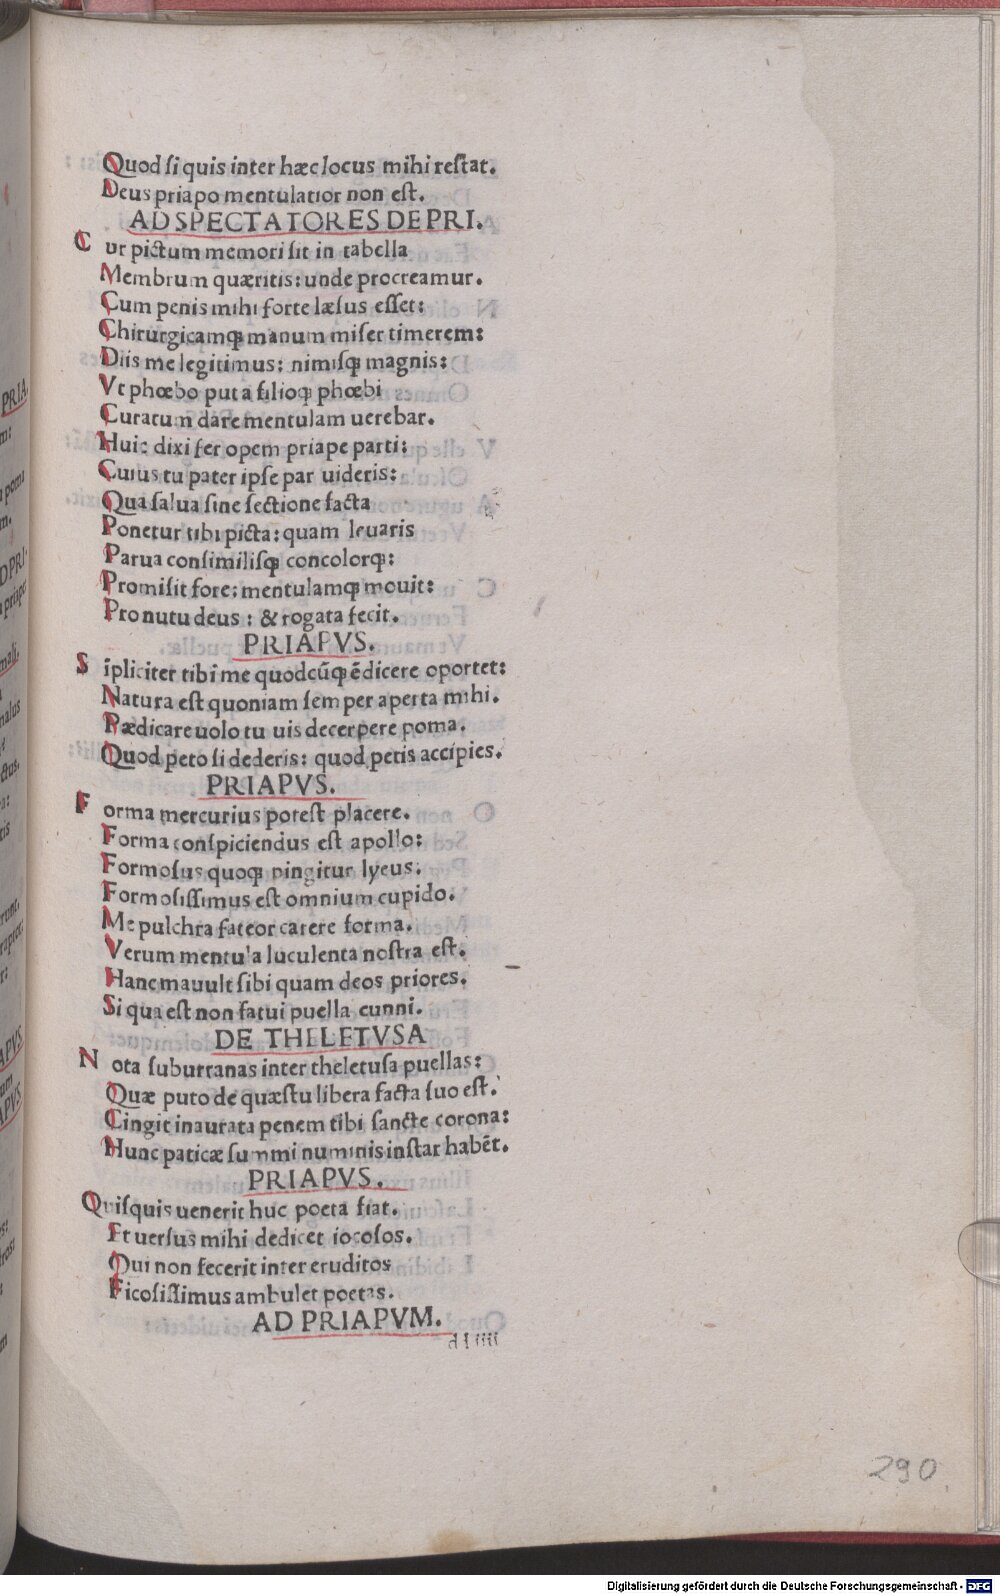 Quod ſi quis inter hæc locus mihi reſtat.
Deus priapo mentulatior non eſt.
AD SPECTATORES DE PRI.
C ur pictum memori ſit in tabella
Membrum quæritis: unde procreamur.
Cum penis mihi forte læſus eſſet:
Chirurgicamqꝫ manum miſer timerem:
Diis me legitimus: nimiſqꝫ magnis:
Vt phœbo puta filioqꝫ phœbi
Curatum dare mentulam uerebar.
Huic dixi fer opem priape parti:
Cuius tu pater ipſe par uideris:
Qua ſalua ſine ſectione facta
Ponetur tibi picta: quam leuaris
Parua conſimiliſqꝫ concolorqꝫ:
Promiſit fore: mentulamqꝫ mouit:
Pro nutu deus: & rogata fecit.
PRIAPVS.
S īpliciter tibi me quodcūqꝫ ē dicere oportet:
Natura eſt quoniam ſemper aperta mihi.
Pædicare uolo tu uis decerpere poma.
Quod peto ſi dederis: quod petis accipies.
PRIAPVS.
F orma mercurius poteſt placere.
Forma conſpiciendus eſt apollo:
Formoſus quoqꝫ pingitur lyeus:
Formoſiſſimus eſt omnium cupido.
Me pulchra fateor carere forma.
Verum mentula luculenta noſtra eſt.
Hanc mauult ſibi quam deos priores.
Si qua eſt non fatui puella cunni.
DE THELETVSA
N ota ſuburranas inter theletuſa puellas:
Quæ puto de quæſtu libera facta ſuo eſt.
Cingit inaurata penem tibi ſancte corona:
Hunc paticæ ſummi numinis inſtar habēt.
PRIAPVS.
Quiſquis uenerit huc poeta fiat.
Et uerſus mihi dedicet iocoſos.
Qui non fecerit inter eruditos
Ficoſiſſimus ambulet poetas.
AD PRIAPVM.
290
Digitalisierung gefördert durch die Deutsche Forschungsgemeinschaft - DFG